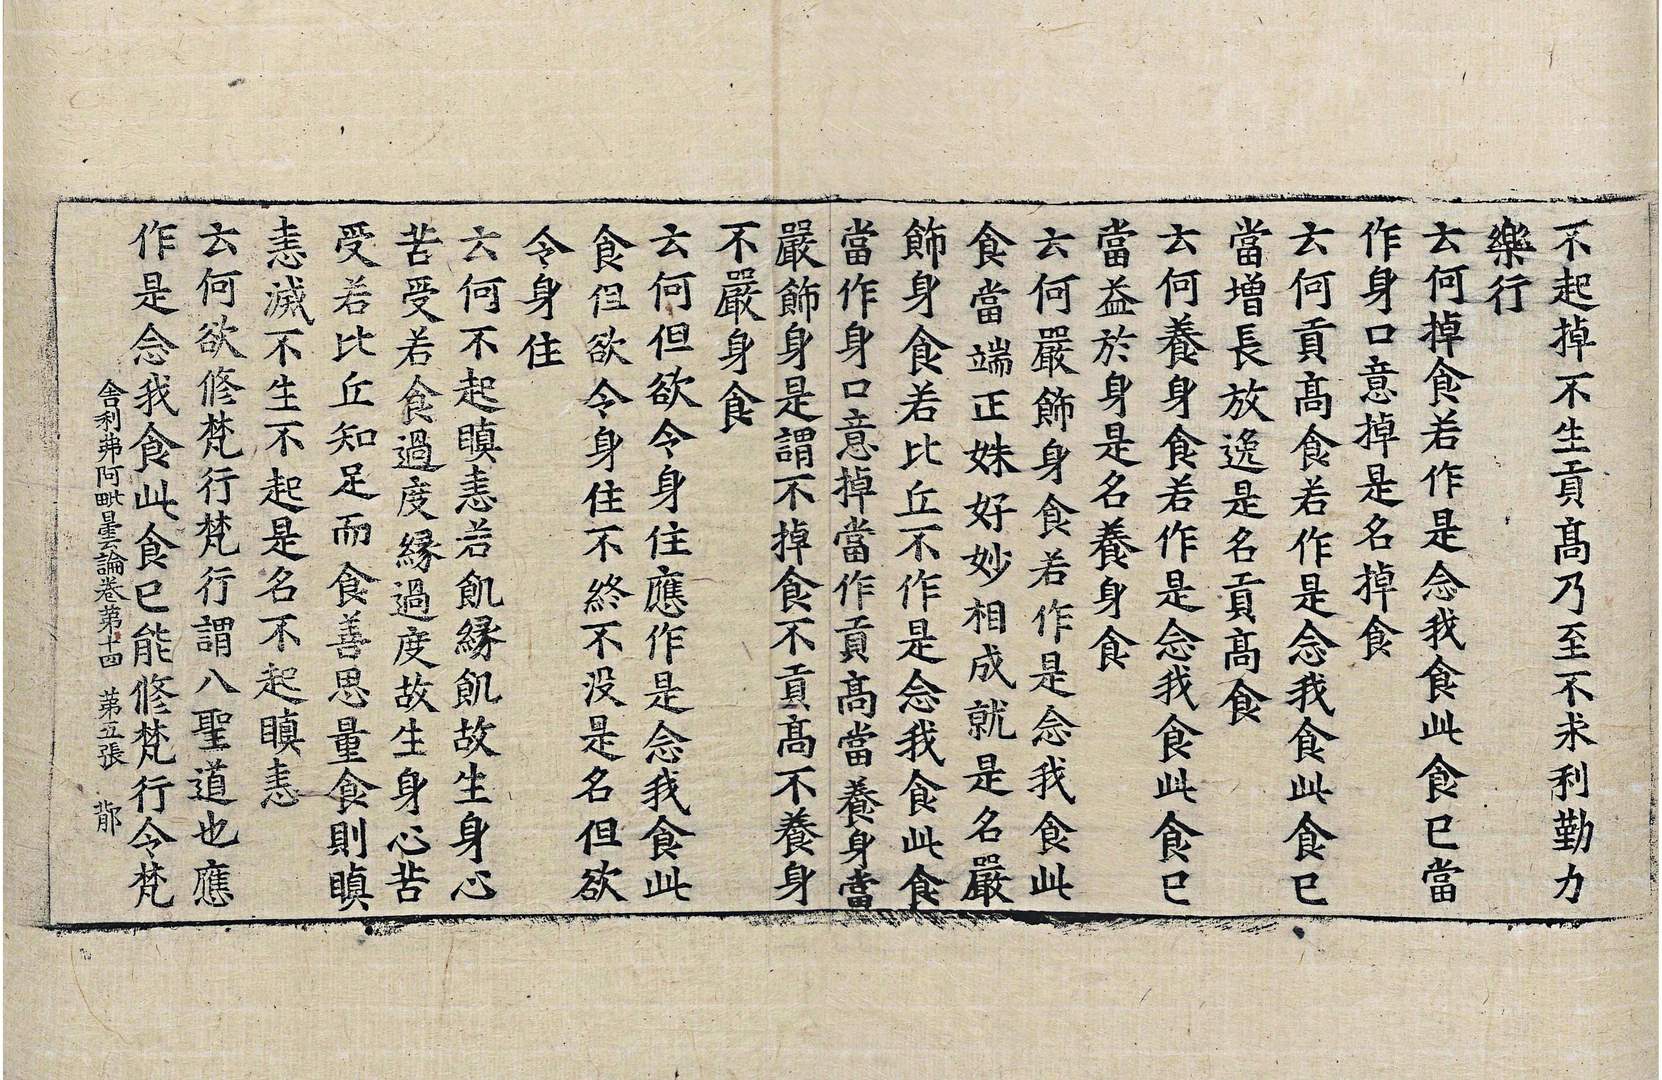 不起掉不生貢髙乃至不求利勤力
樂行
云何掉食若作是念我食此食已當
作身口意掉是名掉食
云何貢髙食若作是念我食此食已
當增長放逸是名貢髙食
云何養身食若作是念我食此食已
當益於身是名養身食
云何嚴飾身食若作是念我食此
食當端正姝好妙相成就是名嚴
飾身食若比丘不作是念我食此食
當作身口意掉當作貢髙當養身當
嚴飾身是謂不掉食不貢髙不養身
不嚴身食
云何但欲令身住應作是念我食此
食但欲令身住不終不没是名但欲
令身住
云何不起瞋恚若飢縁飢故生身心
苦受若食過度縁過度故生身心苦
受若比丘知足而食善思量食則瞋
恚滅不生不起是名不起瞋恚
云何欲修梵行梵行謂八聖道也應
作是念我食此食已能修梵行令梵
舍利弗阿毗曇論卷第十四 第五張